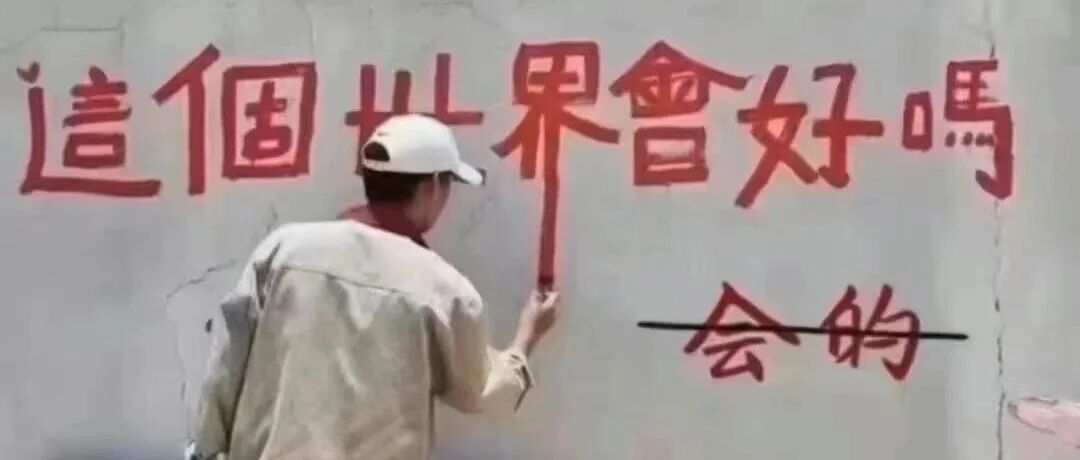 這個世界會好嗎
会的